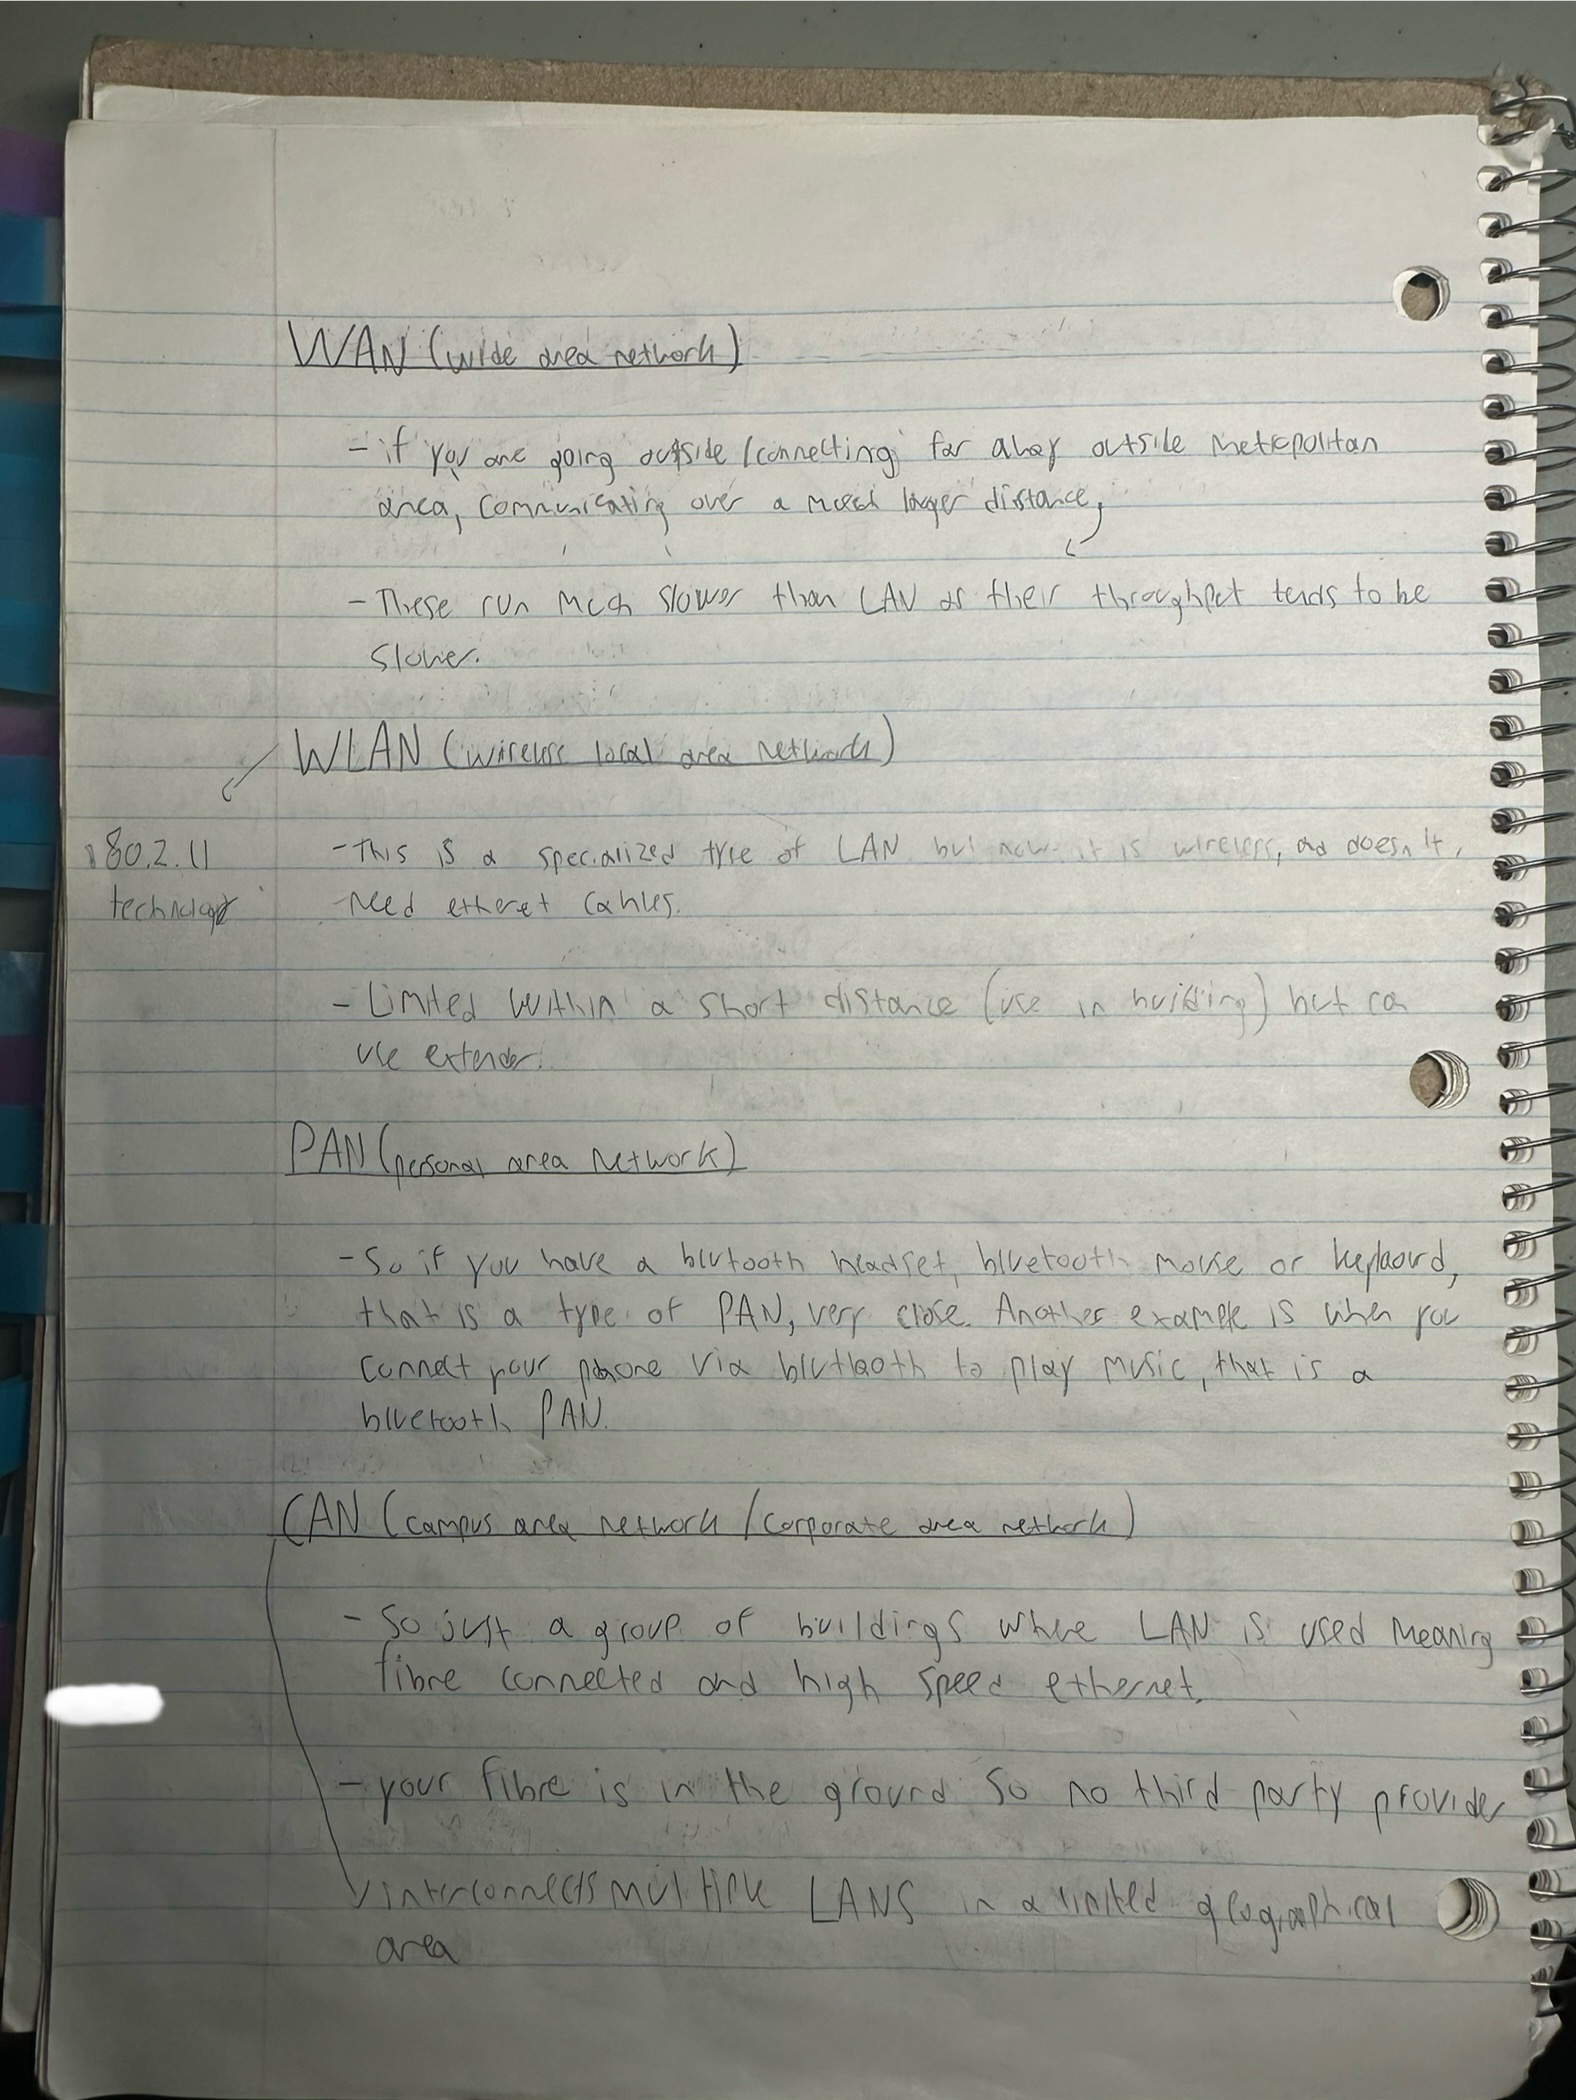 WAN (wide area network)
- if you are going outside / connecting far away outside Metropolitan
area, communicating over a much larger distance,
- These run mcch slower than LAN as their throughput tends to be
slower.
WLAN (wireless local area network)
80.2.11
technology
- This is a specialized type of LAN but now it is wireless, and doesn't
need etheret cables.
- Limited within a short distance (use in building) but can
use extender.
PAN (personal area network)
- So if you have a blutooth headset, bluetooth mouse or keyboard,
that is a type of PAN, very close. Another example is when you
connect your phone via blutooth to play music, that is a
bluetooth PAN.
CAN (campus area network / corporate area network)
- So just a group of buildings where LAN is used meaning
fibre connected and high speed ethernet.
- your fibre is in the ground so no third party provider
interconnects multiple LANS in a limited geographical
area